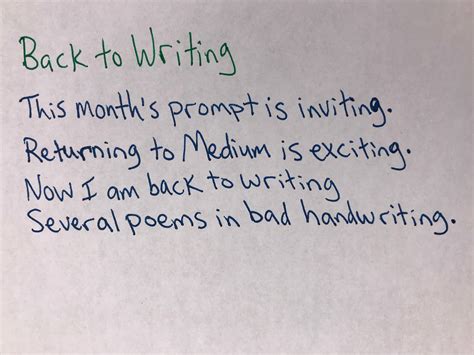 Back to Writing
This month's prompt is inviting.
Returning to Medium is exciting.
Now I am back to writing
Several poems in bad handwriting.